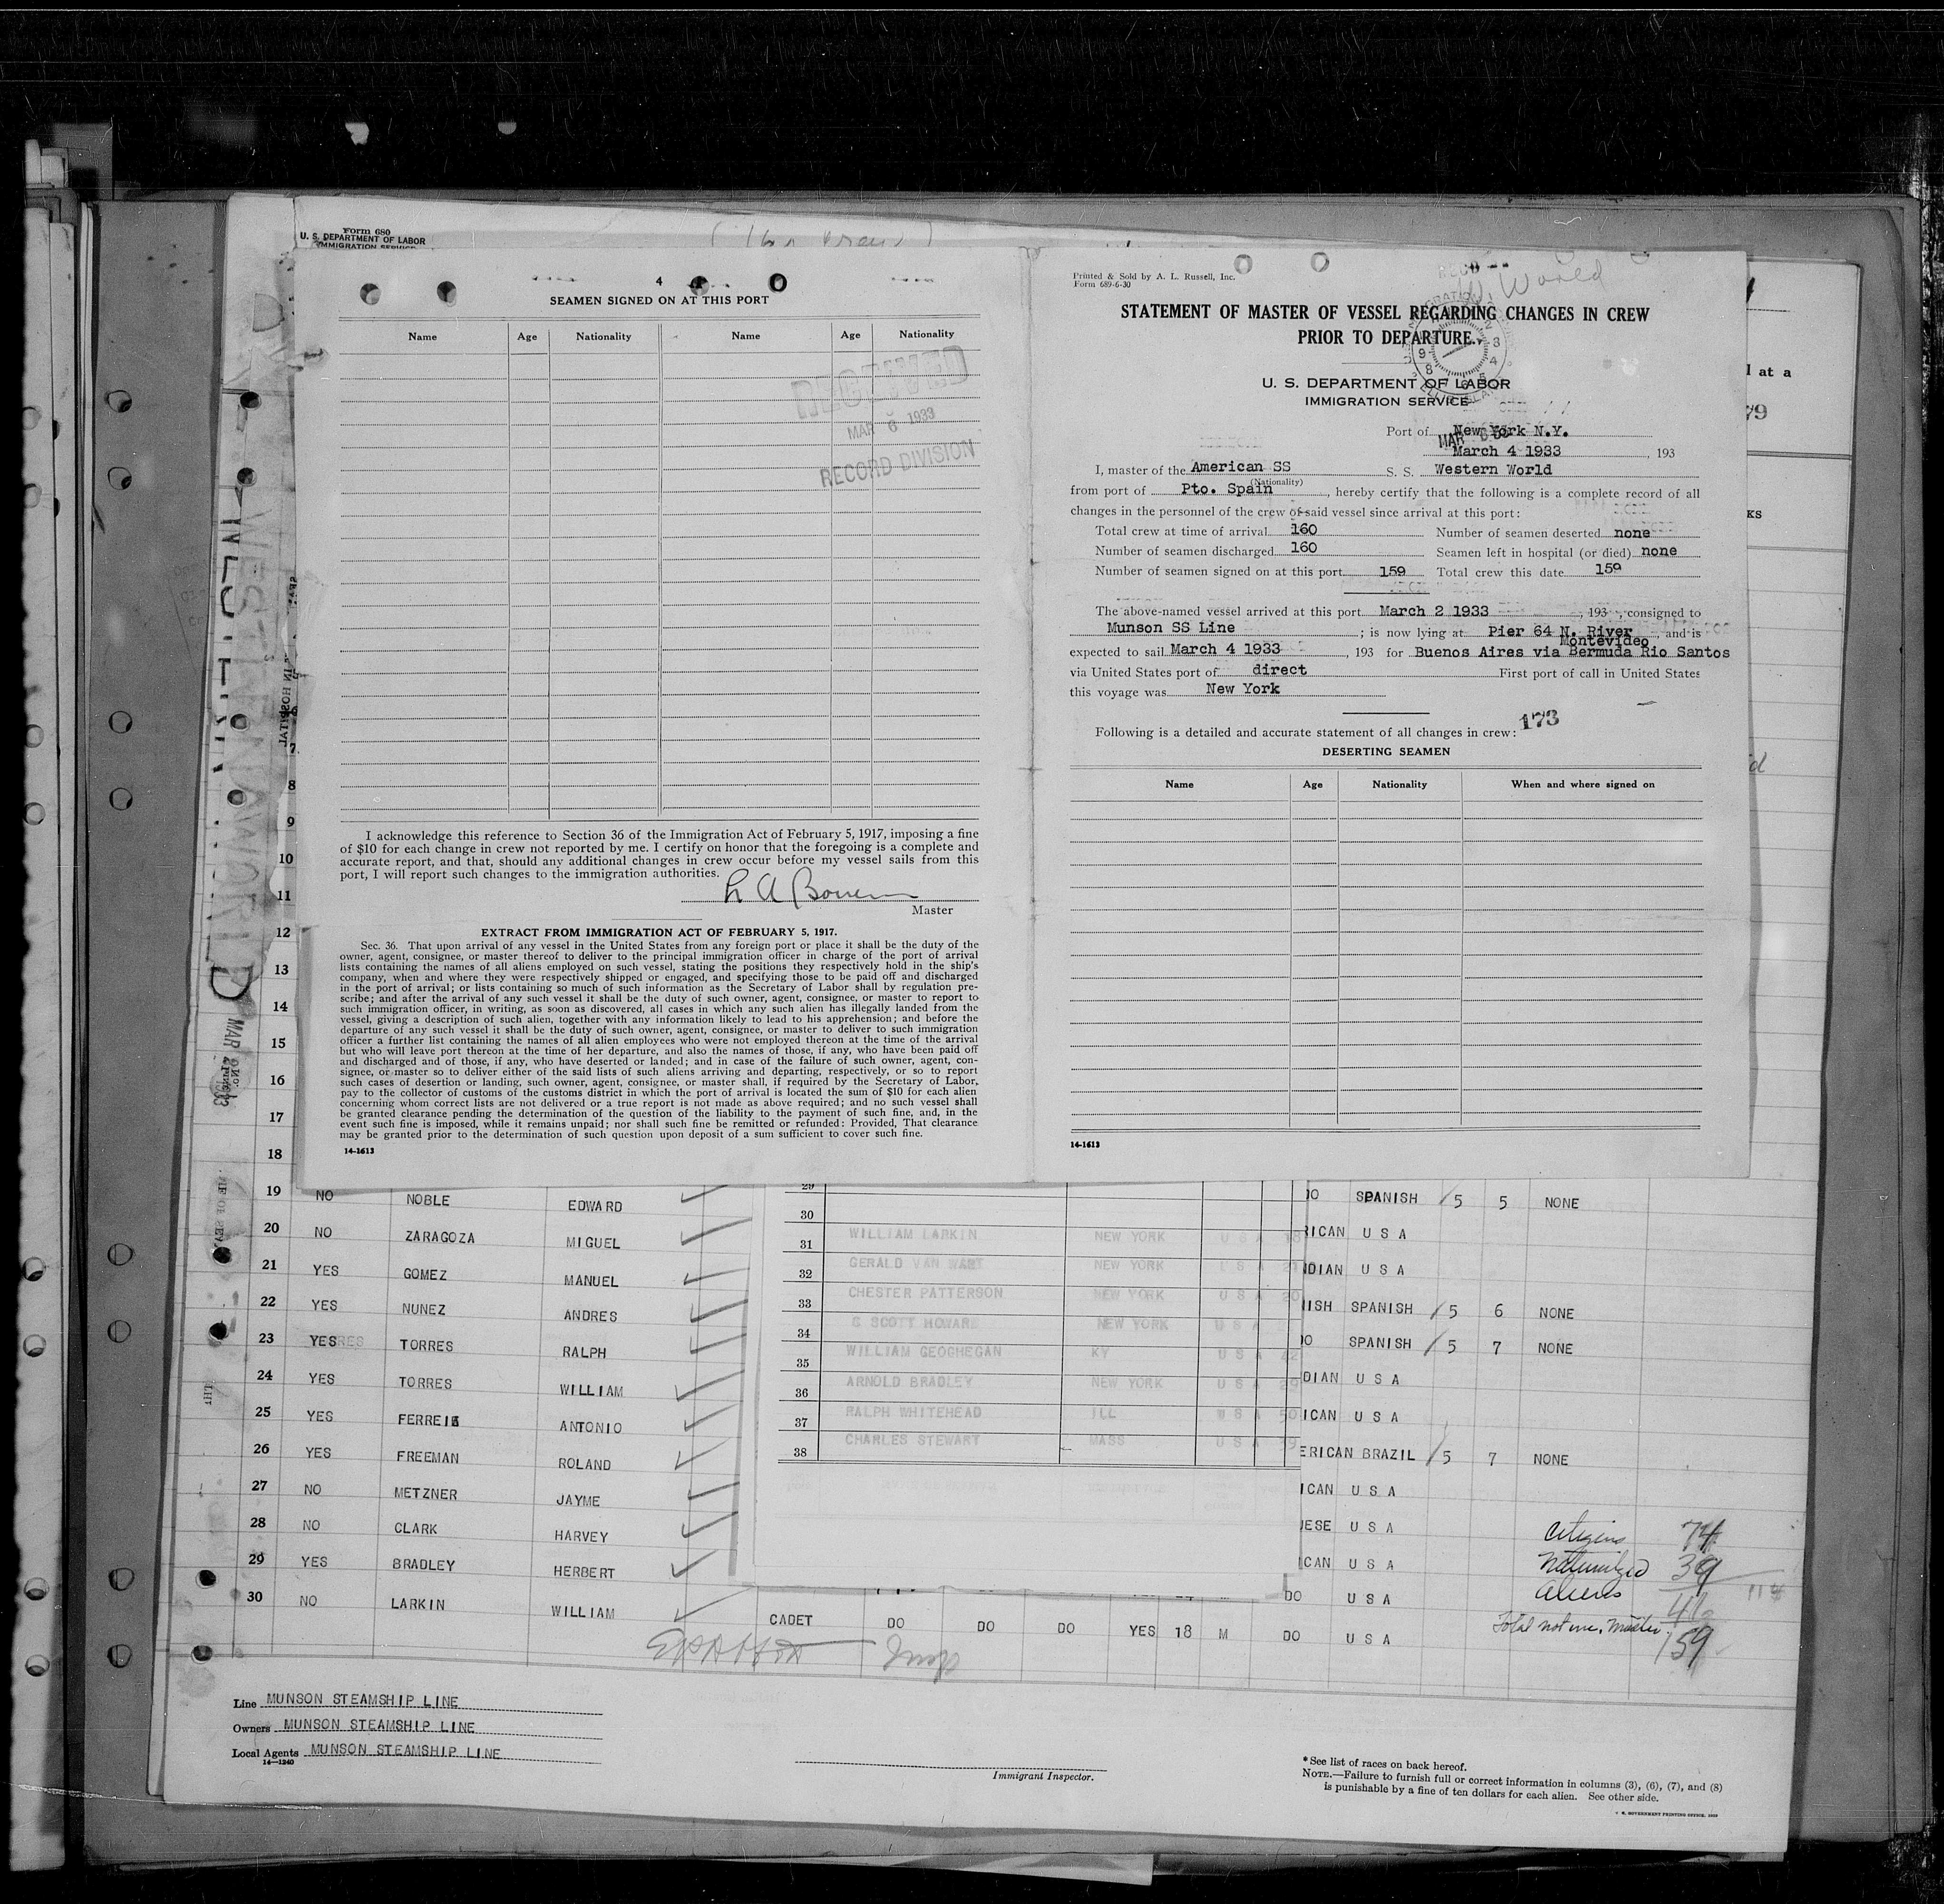 Form 680
U. S. DEPARTMENT OF LABOR
IMMIGRATION SERVICE
4
SEAMEN SIGNED ON AT THIS PORT
Name Age Nationality Name Age Nationality
RECEIVED
MAR 6 1933
RECORD DIVISION
I acknowledge this reference to Section 36 of the Immigration Act of February 5, 1917, imposing a fine
of $10 for each change in crew not reported by me. I certify on honor that the foregoing is a complete and
accurate report, and that, should any additional changes in crew occur before my vessel sails from this
port, I will report such changes to the immigration authorities.
Master
EXTRACT FROM IMMIGRATION ACT OF FEBRUARY 5, 1917.
Sec. 36. That upon arrival of any vessel in the United States from any foreign port or place it shall be the duty of the
owner, agent, consignee, or master thereof to deliver to the principal immigration officer in charge of the port of arrival
lists containing the names of all aliens employed on such vessel, stating the positions they respectively hold in the ship's
company, when and where they were respectively shipped or engaged, and specifying those to be paid off and discharged
in the port of arrival; or lists containing so much of such information as the Secretary of Labor shall by regulation pre-
scribe; and after the arrival of any such vessel it shall be the duty of such owner, agent, consignee, or master to report to
such immigration officer, in writing, as soon as discovered, all cases in which any such alien has illegally landed from the
vessel, giving a description of such alien, together with any information likely to lead to his apprehension; and before the
departure of any such vessel it shall be the duty of such owner, agent, consignee, or master to deliver to such immigration
officer a further list containing the names of all alien employees who were not employed thereon at the time of the arrival
but who will leave port thereon at the time of her departure, and also the names of those, if any, who have been paid off
and discharged and of those, if any, who have deserted or landed; and in case of the failure of such owner, agent, con-
signee, or master so to deliver either of the said lists of such aliens arriving and departing, respectively, or so to report
such cases of desertion or landing, such owner, agent, consignee, or master shall, if required by the Secretary of Labor,
pay to the collector of customs of the customs district in which the port of arrival is located the sum of $10 for each alien
concerning whom correct lists are not delivered or a true report is not made as above required; and no such vessel shall
be granted clearance pending the determination of the question of the liability to the payment of such fine, and, in the
event such fine is imposed, while it remains unpaid; nor shall such fine be remitted or refunded: Provided, That clearance
may be granted prior to the determination of such question upon deposit of a sum sufficient to cover such fine.
14-1613
Printed & Sold by A. L. Russell, Inc.
Form 689-6-30
W. World
STATEMENT OF MASTER OF VESSEL REGARDING CHANGES IN CREW
PRIOR TO DEPARTURE.
U. S. DEPARTMENT OF LABOR
IMMIGRATION SERVICE
Port of New York N.Y.
March 4 1933, 193
I, master of the American SS S. S. Western World
(Nationality)
from port of Pto. Spain, hereby certify that the following is a complete record of all
changes in the personnel of the crew of said vessel since arrival at this port:
Total crew at time of arrival 160 Number of seamen deserted none
Number of seamen discharged 160 Seamen left in hospital (or died) none
Number of seamen signed on at this port 159 Total crew this date 159
The above-named vessel arrived at this port March 2 1933, 193 , consigned to
Munson SS Line ; is now lying at Pier 64 N. River, and is
Montevideo
expected to sail March 4 1933, 193 for Buenos Aires via Bermuda Rio Santos
via United States port of direct First port of call in United States
this voyage was New York
173
Following is a detailed and accurate statement of all changes in crew:
DESERTING SEAMEN
Name Age Nationality When and where signed on
14-1613
l at a
79
KS
7
8
9
10
11
12
13
14
15
16
17
18
19 NO NOBLE EDWARD
20 NO ZARAGOZA MIGUEL
21 YES GOMEZ MANUEL
22 YES NUNEZ ANDRES
23 YES TORRES RALPH
24 YES TORRES WILLIAM
25 YES FERREIR ANTONIO
26 YES FREEMAN ROLAND
27 NO METZNER JAYME
28 NO CLARK HARVEY
29 YES BRADLEY HERBERT
30 NO LARKIN WILLIAM CADET DO DO DO YES 18 M DO U S A
29
30
31 WILLIAM LARKIN NEW YORK U S A 18
32 GERALD VAN WART NEW YORK U S A 21
33 CHESTER PATTERSON NEW YORK U S A 20
34 G SCOTT HOWARE NEW YORK U S A
35 WILLIAM GEOGHEGAN KY U S A 42
36 ARNOLD BRADLEY NEW YORK U S A 29
37 RALPH WHITEHEAD ILL U S A 50
38 CHARLES STEWART MASS U S A 39
DO SPANISH 5 5 NONE
RICAN U S A
NDIAN U S A
NISH SPANISH 5 6 NONE
DO SPANISH 5 7 NONE
DIAN U S A
ICAN U S A
ERICAN BRAZIL 5 7 NONE
ICAN U S A
UESE U S A
ICAN U S A
DO U S A
Citizens 74
Naturalized 39
Aliens 46
Total not inc. Master 159
Line MUNSON STEAMSHIP LINE
Owners MUNSON STEAMSHIP LINE
Local Agents MUNSON STEAMSHIP LINE
14-1240
Immigrant Inspector.
*See list of races on back hereof.
NOTE.—Failure to furnish full or correct information in columns (3), (6), (7), and (8)
is punishable by a fine of ten dollars for each alien. See other side.